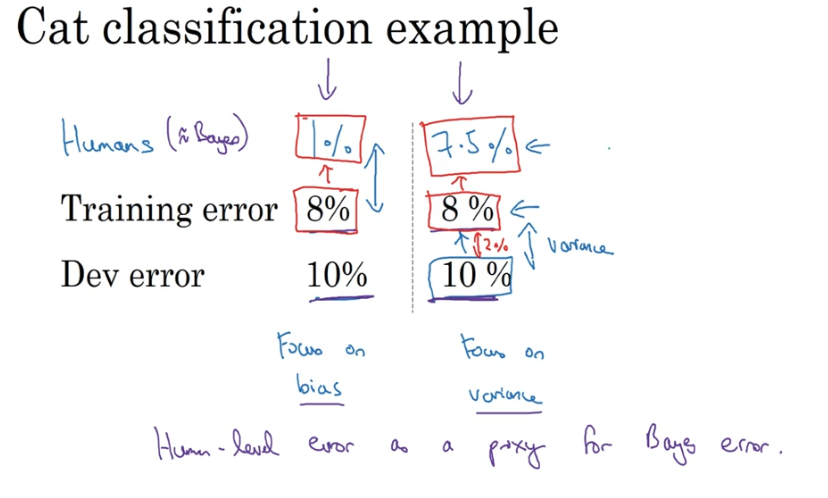 Cat classification example
Humans (≈ Bayes) 1% 7.5%
Training error 8% 8 %
2% variance
Dev error 10% 10 %
Focus on Focus on
bias variance
Human-level error as a proxy for Bayes error.